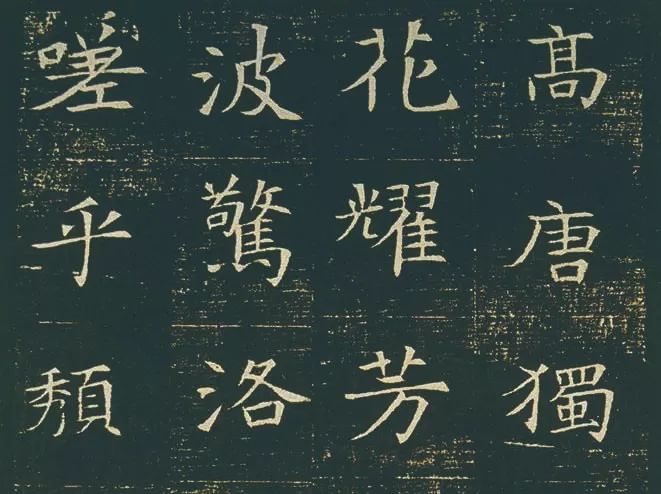 髙唐獨
花耀芳
波驚洛
嗟乎頹